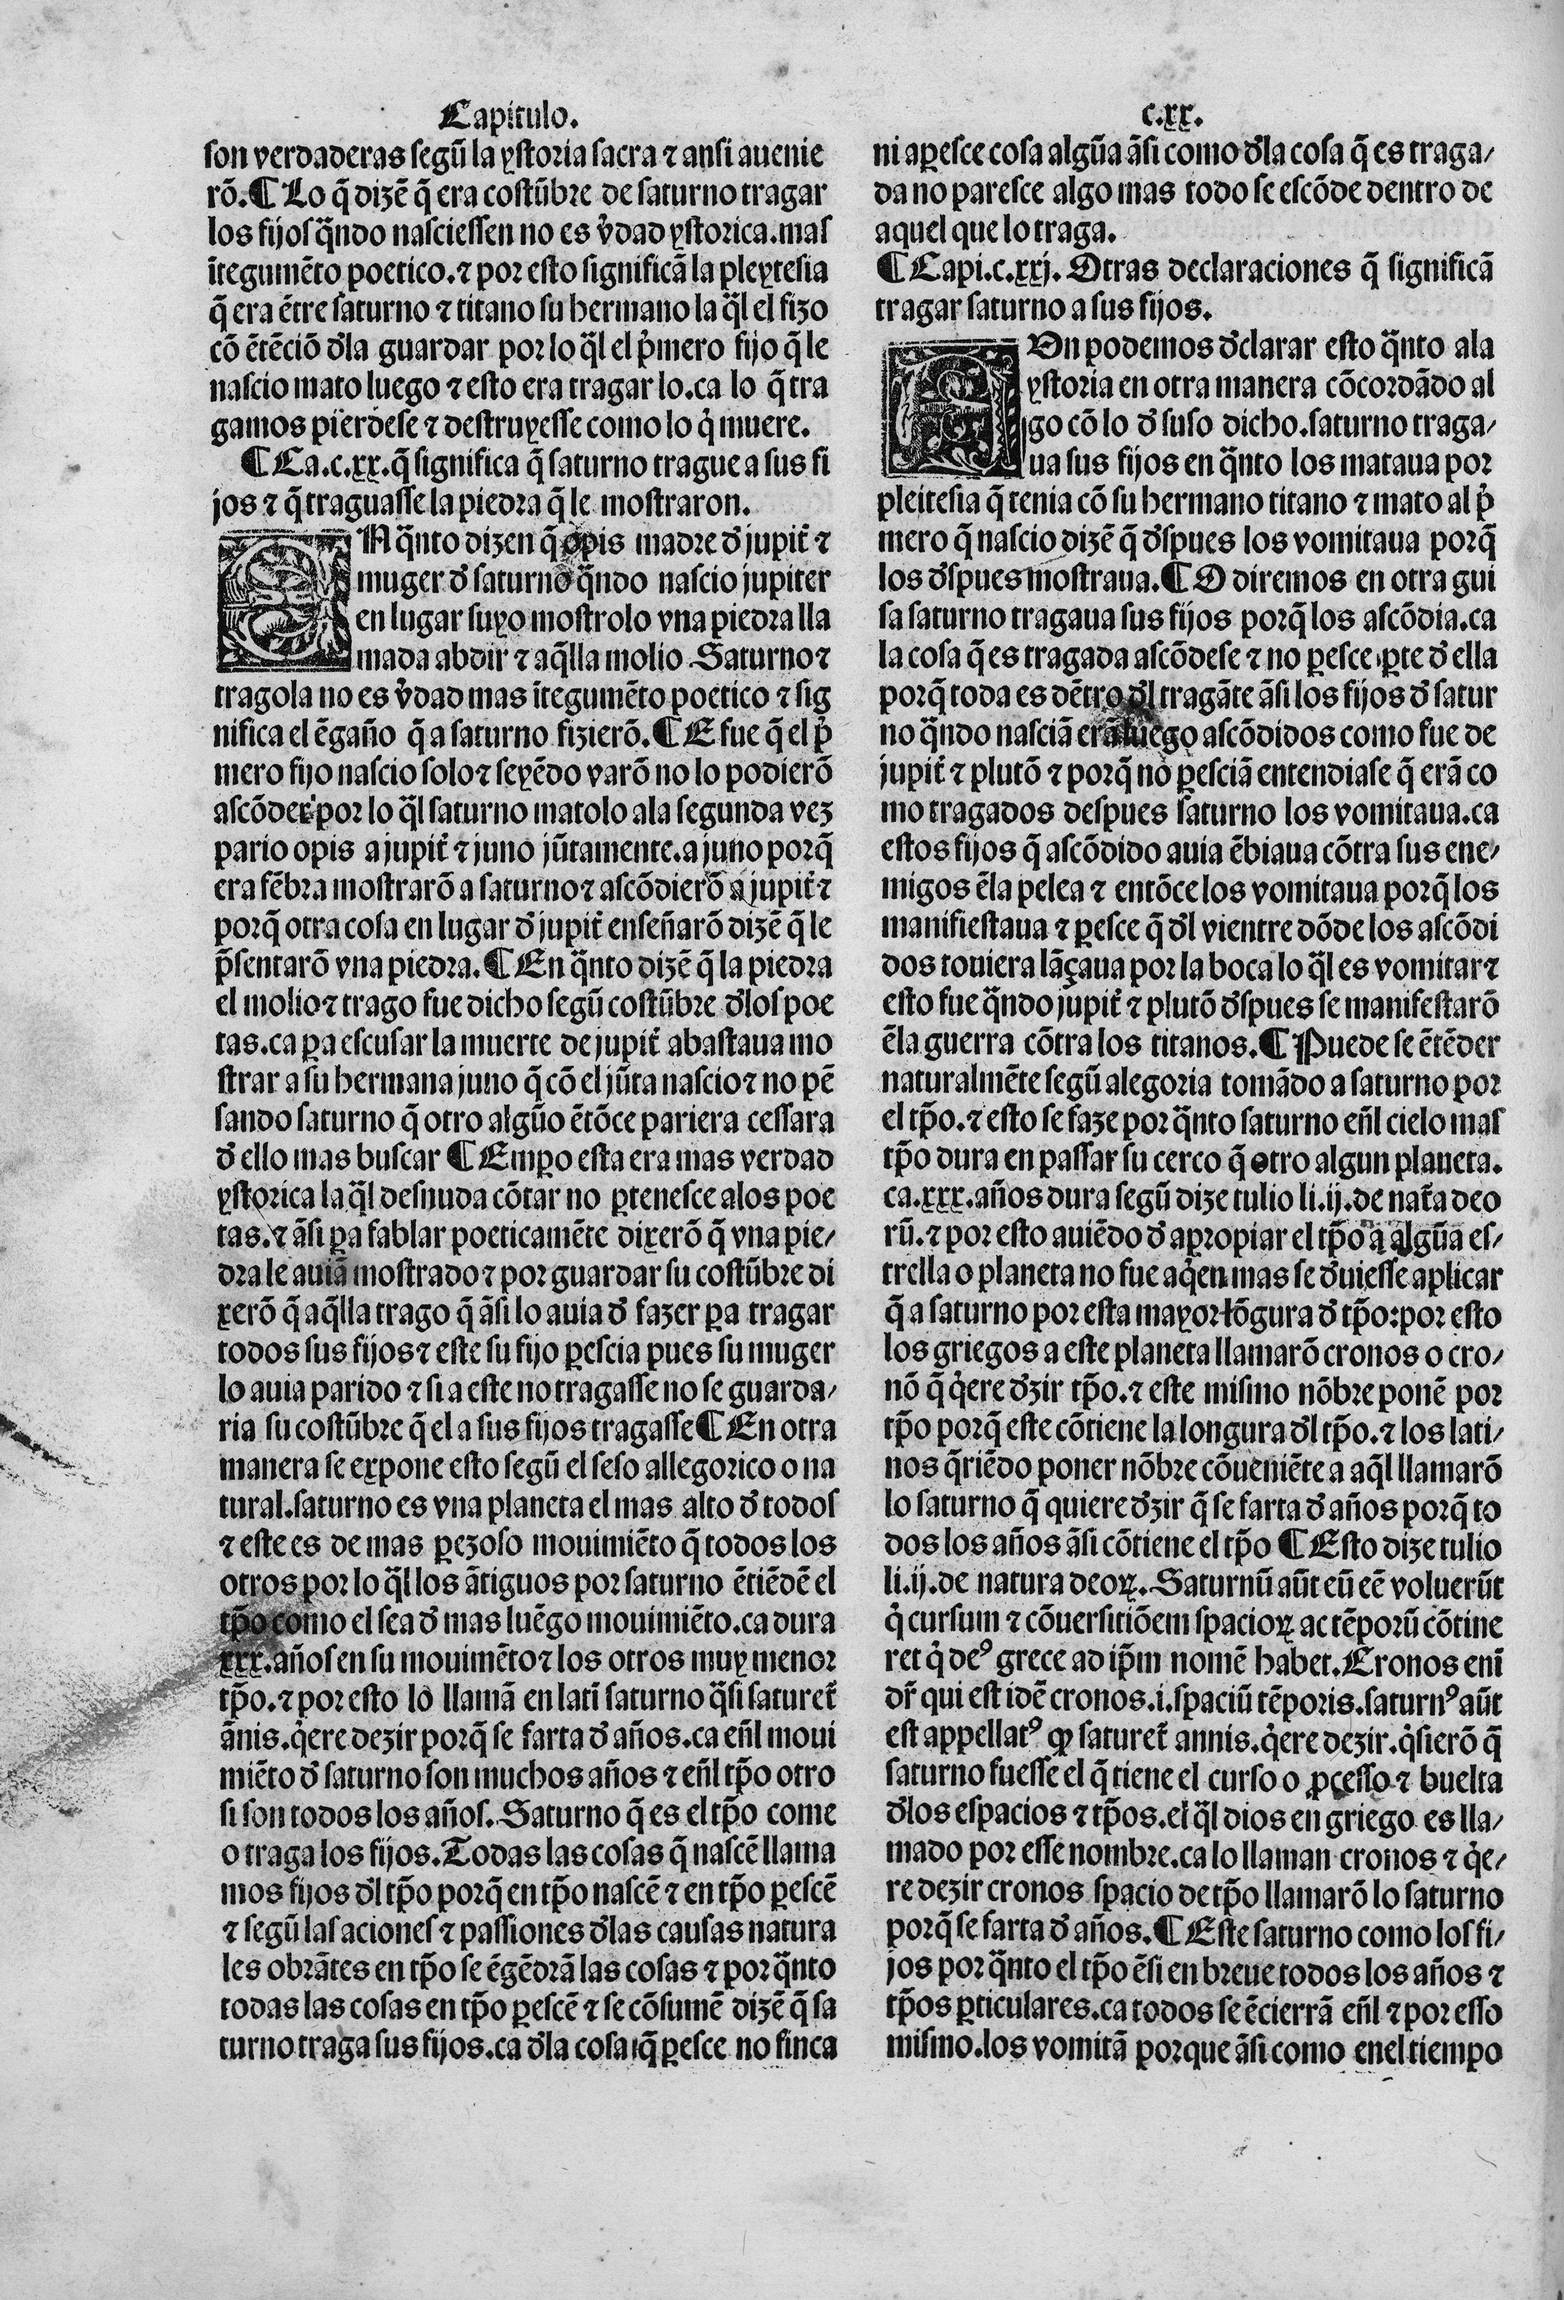 Capitulo.
c.xx.
son verdaderas segũ la ystoria sacra ⁊ ansi auenie
rõ.¶ Lo q̃ dizẽ q̃ era costũbre de saturno tragar
los fijos q̃ndo nasciessen no es v̾dad ystorica.mas
ĩtegumẽto poetico.⁊ por esto significã la pleytesia
q̃ era ẽtre saturno ⁊ titano su hermano la q̃l el fizo
cõ ẽtẽciõ đla guardar por lo q̃l el p̾mero fijo q̃ le
nascio mato luego ⁊ esto era tragar lo.ca lo q̃ tra
gamos pierdese ⁊ destruyesse como lo q̾ muere.
¶ Ca.c.xx.q̃ significa q̃ saturno trague a sus fi
jos ⁊ q̃ traguasse la piedra q̃ le mostraron.
EN q̃nto dizen q̃ opis madre đ jupit̾ ⁊
muger đ saturno q̃ndo nascio jupiter
en lugar suyo mostrolo vna piedra lla
mada abdir ⁊ aq̃lla molio Saturno ⁊
tragola no es v̾dad mas ĩtegumẽto poetico ⁊ sig
nifica el ẽgaño q̃ a saturno fizierõ.¶ E fue q̃ el p̾
mero fijo nascio solo ⁊ seyẽdo varõ no lo podierõ
ascõder por lo q̃l saturno matolo ala segunda vez
pario opis a jupit̾ ⁊ juno jũtamente.a juno porq̃
era fẽbra mostrarõ a saturno ⁊ ascõdierõ a jupit̾ ⁊
porq̃ otra cosa en lugar đ jupit̾ enseñarõ dizẽ q̃ le
p̃sentarõ vna piedra.¶ En q̃nto dizẽ q̃ la piedra
el molio ⁊ trago fue dicho segũ costũbre đlos poe
tas.ca ꝑa escusar la muerte de jupit̾ abastaua mo
strar a su hermana juno q̃ cõ el jũta nascio ⁊ no pẽ
sando saturno q̃ otro algũo ẽtõce pariera cessara
đ ello mas buscar ¶ Emꝑo esta era mas verdad
ystorica la q̃l desnuda cõtar no ꝑtenesce alos poe
tas.⁊ ãsi ꝑa fablar poeticamẽte dixerõ q̃ vna pie/
dra le auiã mostrado ⁊ por guardar su costũbre di
xerõ q̃ aq̃lla trago q̃ ãsi lo auia đ fazer ꝑa tragar
todos sus fijos ⁊ este su fijo ꝑescia pues su muger
lo auia parido ⁊ si a este no tragasse no se guarda/
ria su costũbre q̃ el a sus fijos tragasse ¶ En otra
manera se expone esto segũ el seso allegorico o na
tural.saturno es vna planeta el mas alto đ todos
⁊ este es de mas ꝑezoso mouimiẽto q̃ todos los
otros por lo q̃l los ãtiguos por saturno ẽtiẽdẽ el
tp̃o como el sea đ mas luẽgo mouimiẽto.ca dura
xxx.años en su mouimẽto ⁊ los otros muy menor
tp̃o.⁊ por esto lo llamã en latĩ saturno q̃si saturet̾
ãnis.q̾ere dezir porq̃ se farta đ años.ca eñl moui
miẽto đ saturno son muchos años ⁊ eñl tp̃o otro
si son todos los años.Saturno q̃ es el tp̃o come
o traga los fijos.Todas las cosas q̃ nascẽ llama
mos fijos đl tp̃o porq̃ en tp̃o nascẽ ⁊ en tp̃o ꝑescẽ
⁊ segũ las aciones ⁊ passiones đlas causas natura
les obrãtes en tp̃o se ẽgẽdrã las cosas ⁊ por q̃nto
todas las cosas en tp̃o ꝑescẽ ⁊ se cõsumẽ dizẽ q̃ sa
turno traga sus fijos.ca đla cosa q̃ ꝑesce no finca
ni aꝑesce cosa algũa ãsi como đla cosa q̃ es traga/
da no paresce algo mas todo se escõde dentro de
aquel que lo traga.
¶ Capi.c.xxj. Otras declaraciones q̃ significã
tragar saturno a sus fijos.
AUn podemos đclarar esto q̃nto ala
ystoria en otra manera cõcordãdo al
go cõ lo đ suso dicho.saturno traga/
ua sus fijos en q̃nto los mataua por
pleitesia q̃ tenia cõ su hermano titano ⁊ mato al p̾
mero q̃ nascio dizẽ q̃ đspues los vomitaua porq̃
los đspues mostraua.¶ O diremos en otra gui
sa saturno tragaua sus fijos porq̃ los ascõdia.ca
la cosa q̃ es tragada ascõdese ⁊ no ꝑesce ꝑte đ ella
porq̃ toda es dẽtro đl tragãte ãsi los fijos đ satur
no q̃ndo nasciã erã luego ascõdidos como fue de
jupit̾ ⁊ plutõ ⁊ porq̃ no ꝑesciã entendiase q̃ erã co
mo tragados despues saturno los vomitaua.ca
estos fijos q̃ ascõdido auia ẽbiaua cõtra sus ene/
migos ẽla pelea ⁊ entõce los vomitaua porq̃ los
manifiestaua ⁊ ꝑesce q̃ đl vientre dõde los ascõdi
dos touiera lãçaua por la boca lo q̃l es vomitar ⁊
esto fue q̃ndo jupit̾ ⁊ plutõ đspues se manifestarõ
ẽla guerra cõtra los titanos.¶ Puede se ẽtẽder
naturalmẽte segũ alegoria tomãdo a saturno por
el tp̃o.⁊ esto se faze por q̃nto saturno eñl cielo mas
tp̃o dura en passar su cerco q̃ otro algun planeta.
ca.xxx.años dura segũ dize tulio li.ij.de nat̾a deo
rũ.⁊ por esto auiẽdo đ aꝓpiar el tp̃o a algũa es/
trella o planeta no fue aq̾en mas se đuiesse aplicar
q̃ a saturno por esta mayor lõgura đ tp̃o:por esto
los griegos a este planeta llamarõ cronos o cro/
nõ q̃ q̾ere đzir tp̃o.⁊ este mismo nõbre ponẽ por
tp̃o porq̃ este cõtiene la longura đl tp̃o.⁊ los lati/
nos q̃riẽdo poner nõbre cõueniẽte a aq̃l llamarõ
lo saturno q̃ quiere đzir q̃ se farta đ años porq̃ to
dos los años ãsi cõtiene el tp̃o ¶ Esto dize tulio
li.ij.de natura deoꝝ.Saturnũ aũt eũ eẽ voluerũt
q̾ cursum ⁊ cõuersitiõem spacioꝝ ac tẽporũ cõtine
ret q̾ deꝰ grece ad ip̃m nomẽ habet.Cronos enĩ
dr̃ qui est idẽ cronos.i.spaciũ tẽporis.saturnꝰ aũt
est appellatꝰ ꝙ saturet̾ annis.q̾ere dezir.q̾sierõ q̃
saturno fuesse el q̃ tiene el curso o ꝓçesso ⁊ buelta
đlos espacios ⁊ tp̃os.el q̃l dios en griego es lla/
mado por esse nombre.ca lo llaman cronos ⁊ q̾e/
re dezir cronos spacio de tp̃o llamarõ lo saturno
porq̃ se farta đ años.¶ Este saturno como los fi/
jos por q̃nto el tp̃o ẽsi en breue todos los años ⁊
tp̃os ꝑticulares.ca todos se ẽcierrã eñl ⁊ por esso
mismo.los vomitã porque ãsi como enel tiempo